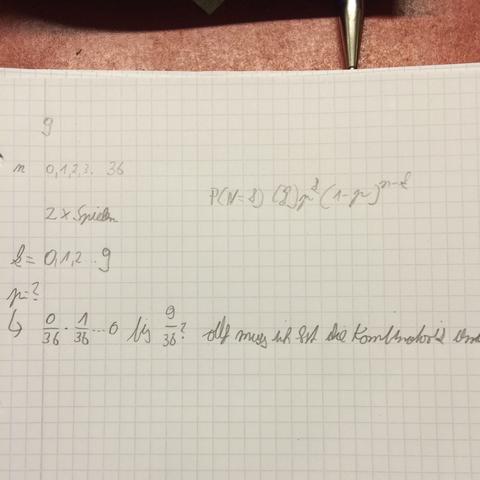 9
n 0,1,2,3.. 36
P(N=k) (k) p^k (1-p)^n-k
2 x Spielen
k = 0,1,2..9
p=?
↳ 0/36 · 1/36 ... 0 bis 9/36? muss ich erst die Kombinatorik